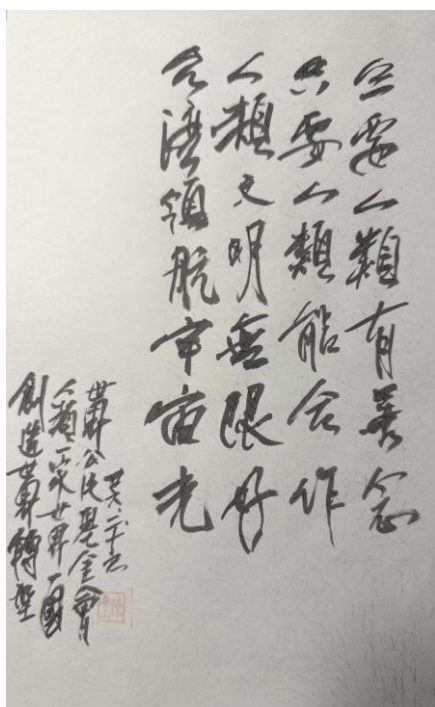 只要人類有善念
只要人類能合作
人類文明無限好
合濟領航宇宙光
世界公民基金會
人類一家世界一國
創造世界轉型